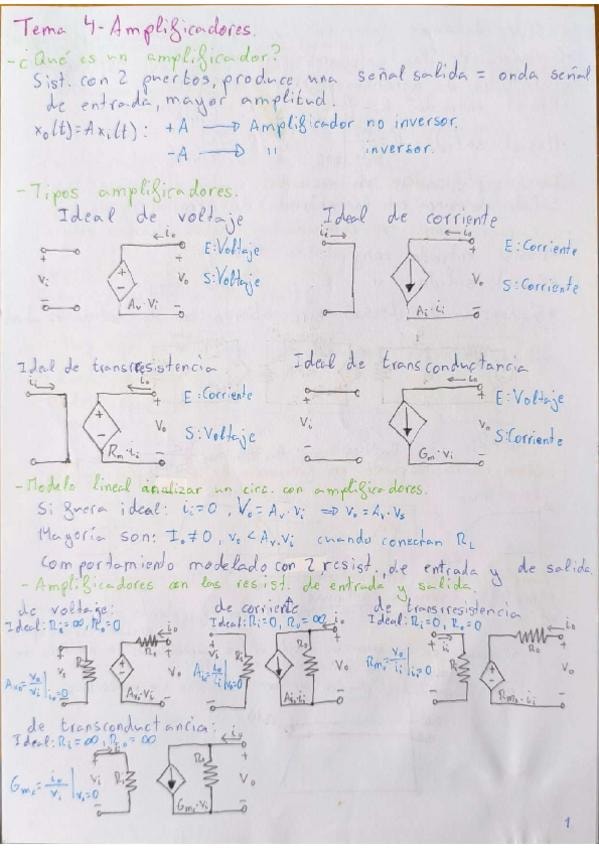 Tema 4-Amplificadores.
-¿Qué es un amplificador?
Sist. con 2 puertos, produce una señal salida = onda señal
de entrada, mayor amplitud.
x₀(t)=Axᵢ(t): +A → Amplificador no inversor.
-A → " inversor.
-Tipos amplificadores.
Ideal de voltaje
i₀
+
Vᵢ
-
+
-
Aᵥ·Vᵢ
+
V₀
-
E:Voltaje
S:Voltaje
Ideal de corriente
iᵢ
i₀
Aᵢ·iᵢ
+
V₀
-
E:Corriente
S:Corriente
Ideal de transrresistencia
iᵢ
i₀
+
-
Rₘ·iᵢ
+
V₀
-
E:Corriente
S:Voltaje
Ideal de transconductancia
i₀
+
Vᵢ
-
Gₘ·Vᵢ
+
V₀
-
E:Voltaje
S:Corriente
-Modelo lineal analizar un circ. con amplificadores.
Si fuera ideal: iᵢ=0, V₀=Aᵥ·Vᵢ ⇒ V₀=Aᵥ·Vₛ
Mayoría son: I₀≠0, V₀<Aᵥ·Vᵢ cuando conectan R_L
Comportamiento modelado con 2 resist., de entrada y de salida.
-Amplificadores con las resist. de entrada y salida.
de voltaje:
Ideal: Rᵢ=∞, R₀=0
i₀
Rᵢ
R₀
V₀
Aᵥ₀=V₀/Vᵢ|i₀=0
Aᵥ₀·Vᵢ
de corriente
Ideal: Rᵢ=0, R₀=∞
iᵢ
i₀
Rᵢ
R₀
V₀
Aᵢ·iᵢ
de transrresistencia
Ideal: Rᵢ=0, R₀=0
iᵢ
i₀
Rᵢ
R₀
V₀
Rₘ₀=V₀/iᵢ|i₀=0
Rₘ₀·iᵢ
de transconductancia:
Ideal: Rᵢ=∞, R₀=∞
i₀
Vᵢ
Rᵢ
R₀
V₀
Gₘₛ=i₀/Vᵢ|V₀=0
Gₘₛ·Vᵢ
1